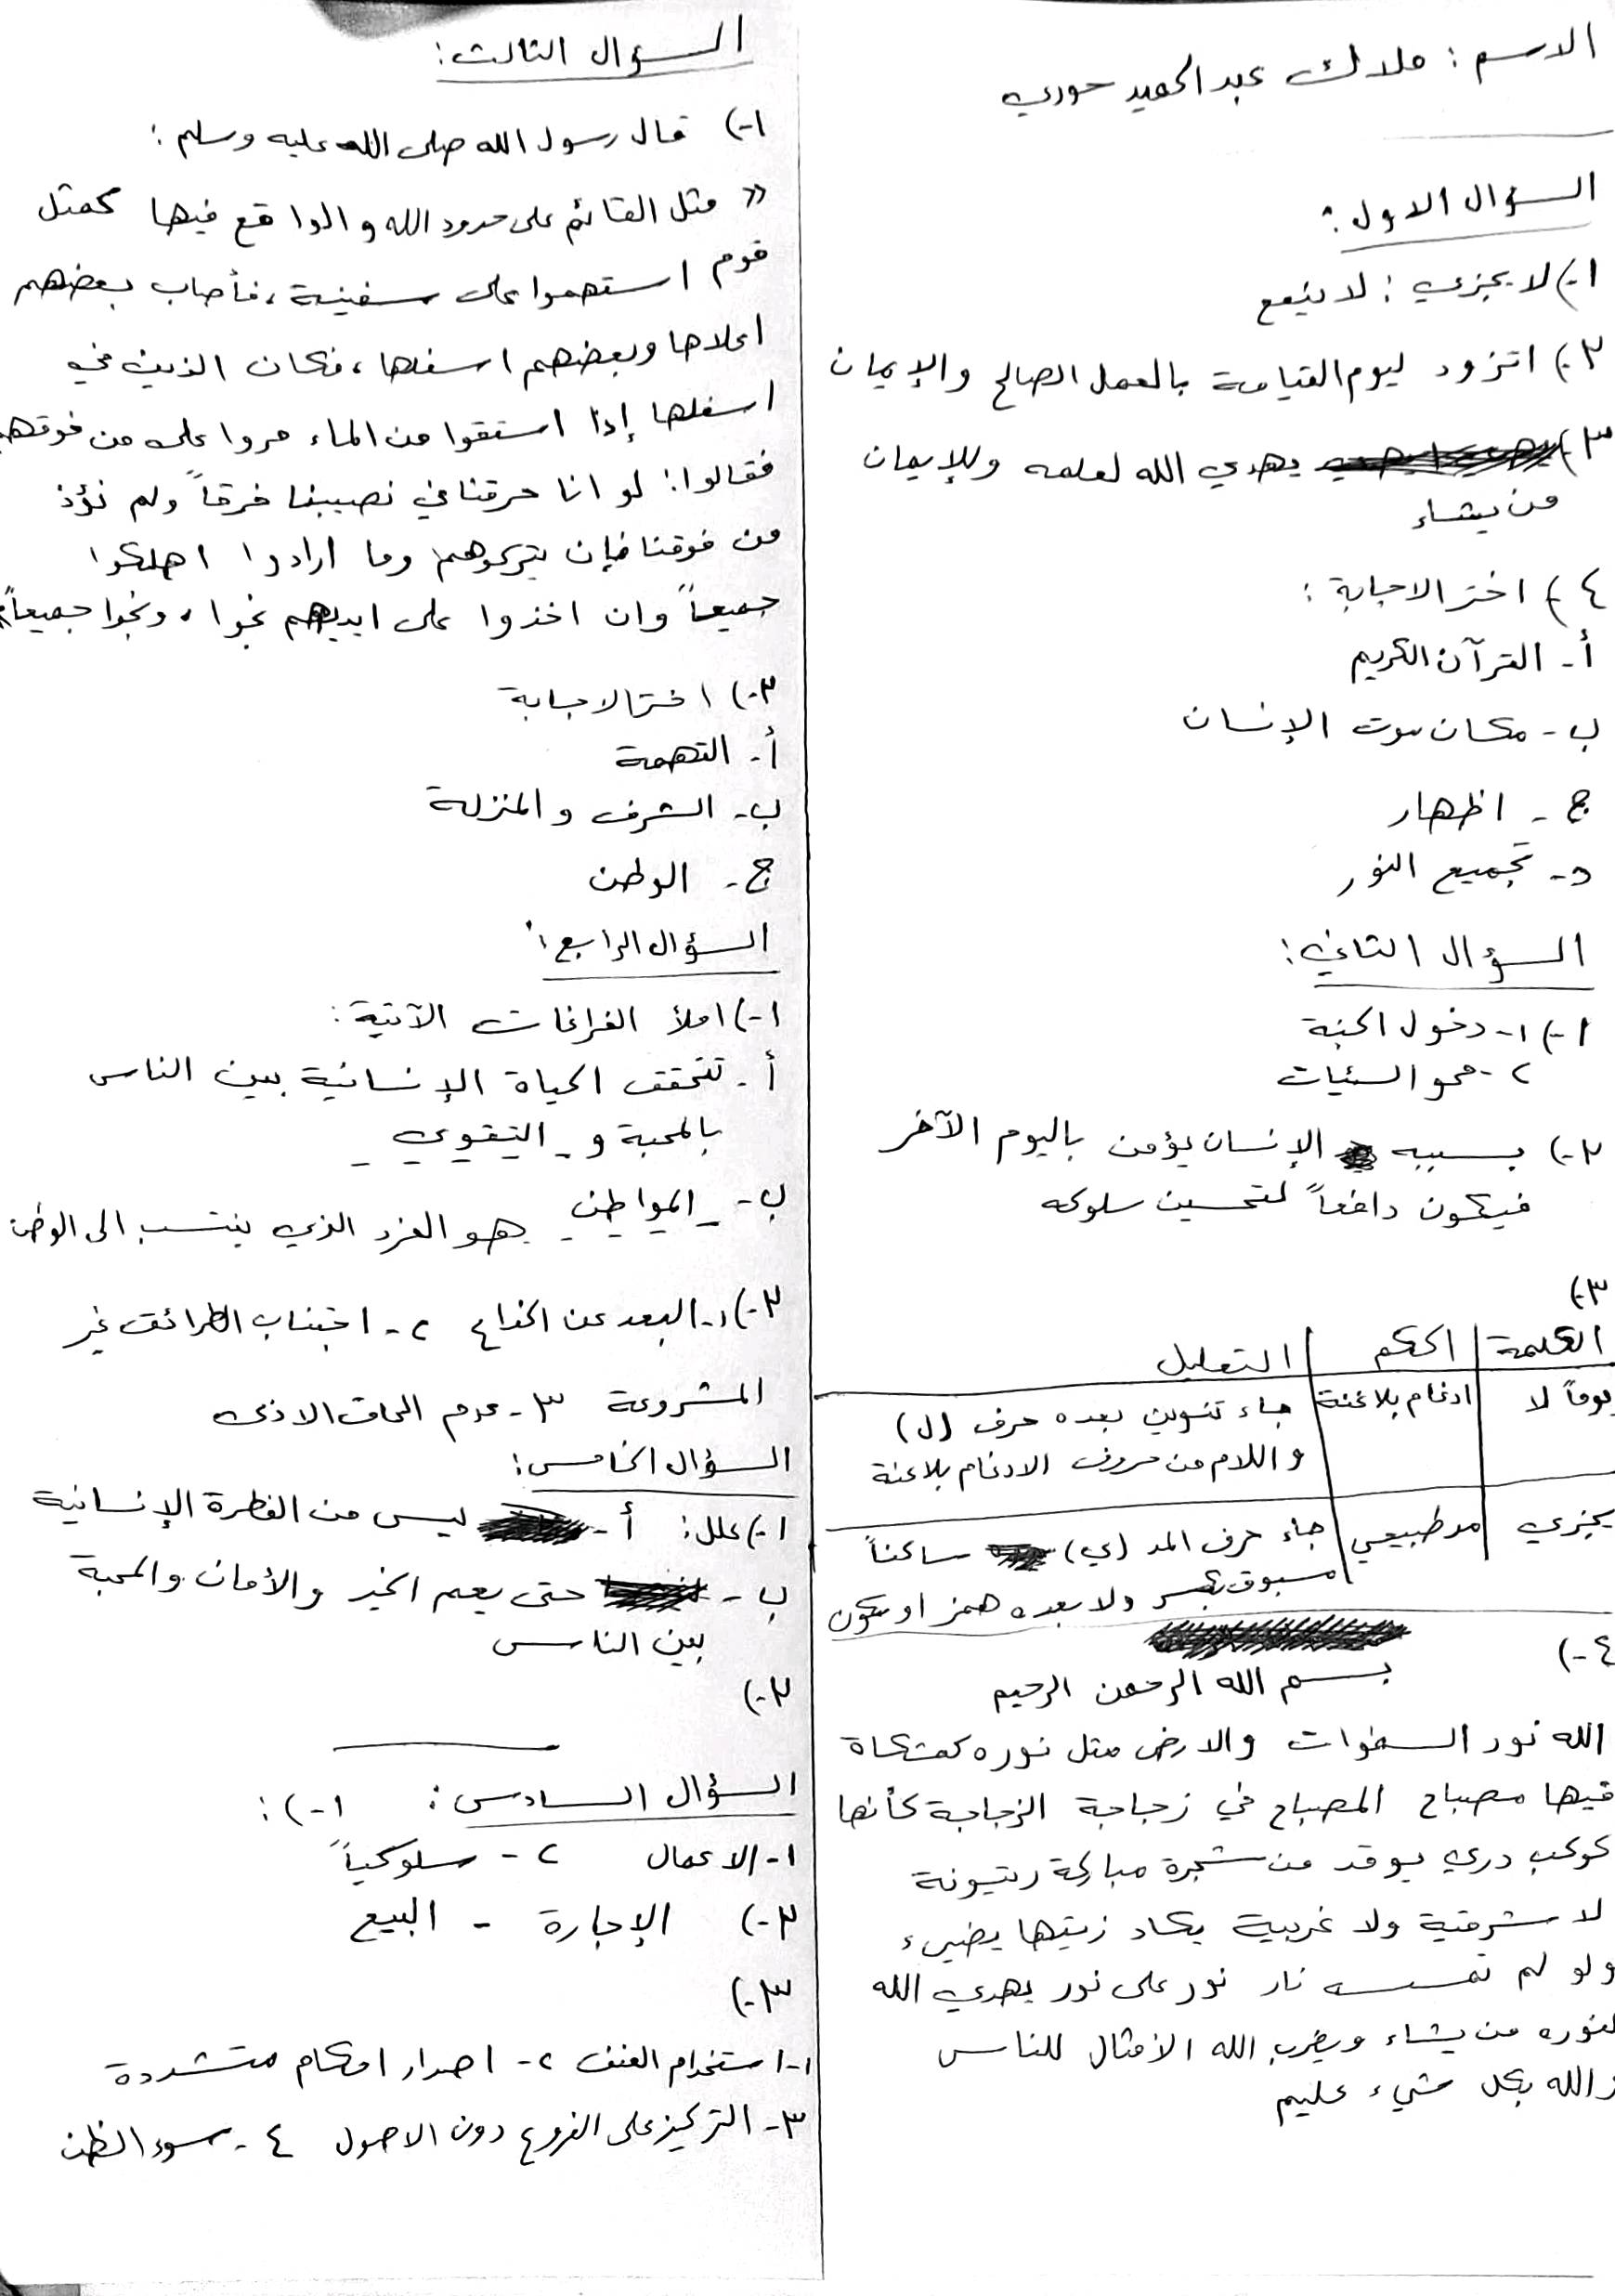 الاسم : ملاك عبد الحميد حوري
السؤال الاول :
١-) لا يجزي : لا ينفع
٢-) اتزود ليوم القيامة بالعمل الصالح والإيمان
٣-) يهدي الله لعلمه وللإيمان
من يشاء
٤-) اختر الاجابة :
أ- القرآن الكريم
ب- مكان موت الإنسان
ج- اظهار
د- تجميع النور
السؤال الثاني :
١-) ١- دخول الجنة
٢- محو السئيات
٢-) بسببه الإنسان يؤمن باليوم الآخر
فيكون دافعاً لتحسين سلوكه
٣-)
الكلمة الحكم التعليل
يوماً لا ادغام بلا غنة جاء تنوين بعده حرف (ل)
واللام من حروف الادغام بلا غنة
يجزي مد طبيعي جاء حرف المد (ي) ساكناً
مسبوق بكسر ولا بعده همز او سكون
٤-)
بسم الله الرحمن الرحيم
الله نور السموات والارض مثل نوره كمشكاة
فيها مصباح المصباح في زجاجة الزجاجة كأنها
كوكب دري يوقد من شجرة مباركة زيتونة
لا شرقية ولا غربية يكاد زيتها يضيء
ولو لم تمسسه نار نور على نور يهدي الله
لنوره من يشاء ويضرب الله الأمثال للناس
والله بكل شيء عليم
السؤال الثالث :
١-) قال رسول الله صلى الله عليه وسلم :
« مثل القائم على حدود الله والواقع فيها كمثل
قوم استهموا على سفينة ، فأصاب بعضهم
اعلاها وبعضهم اسفلها ، فكان الذين في
اسفلها إذا استقوا من الماء مروا على من فوقهم
فقالوا : لو انا خرقنا في نصيبنا خرقاً ولم نؤذ
من فوقنا فإن يتركوهم وما ارادوا اهلكوا
جميعاً وان اخذوا على ايديهم نجوا ، ونجوا جميعاً »
٢-) اختر الاجابة
أ- التهمة
ب- الشرف والمنزلة
ج- الوطن
السؤال الرابع :
١-) املأ الفراغات الآتية :
أ- تتحقق الحياة الإنسانية بين الناس
بالمحبة و _ التقوى _
ب- _ المواطن _ هو الفرد الذي ينتسب الى الوطن
٢-) ١- البعد عن الخداع ٢- اجتناب الطرائق غير
المشروعة ٣- عدم الحاق الاذى
السؤال الخامس :
١-) علل : أ- ليس من الفطرة الإنسانية
ب- حتى يعم الخير والأمان والمحبة
بين الناس
٢-)
السؤال السادس : ١-) :
١- الاعمال ٢- سلوكياً
٢-) الإجارة - البيع
٣-)
١- استخدام العنف ٢- اصدار احكام متشددة
٣- التركيز على الفروع دون الاصول ٤- سوء الظن